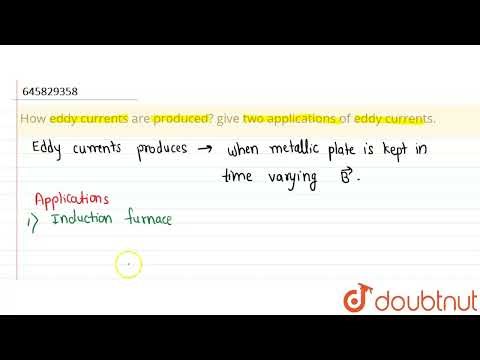 645829358
How eddy currents are produced? give two applications of eddy currents.
Eddy currents produces → when metallic plate is kept in
time varying B⃗.
Applications
1) Induction furnace
doubtnut